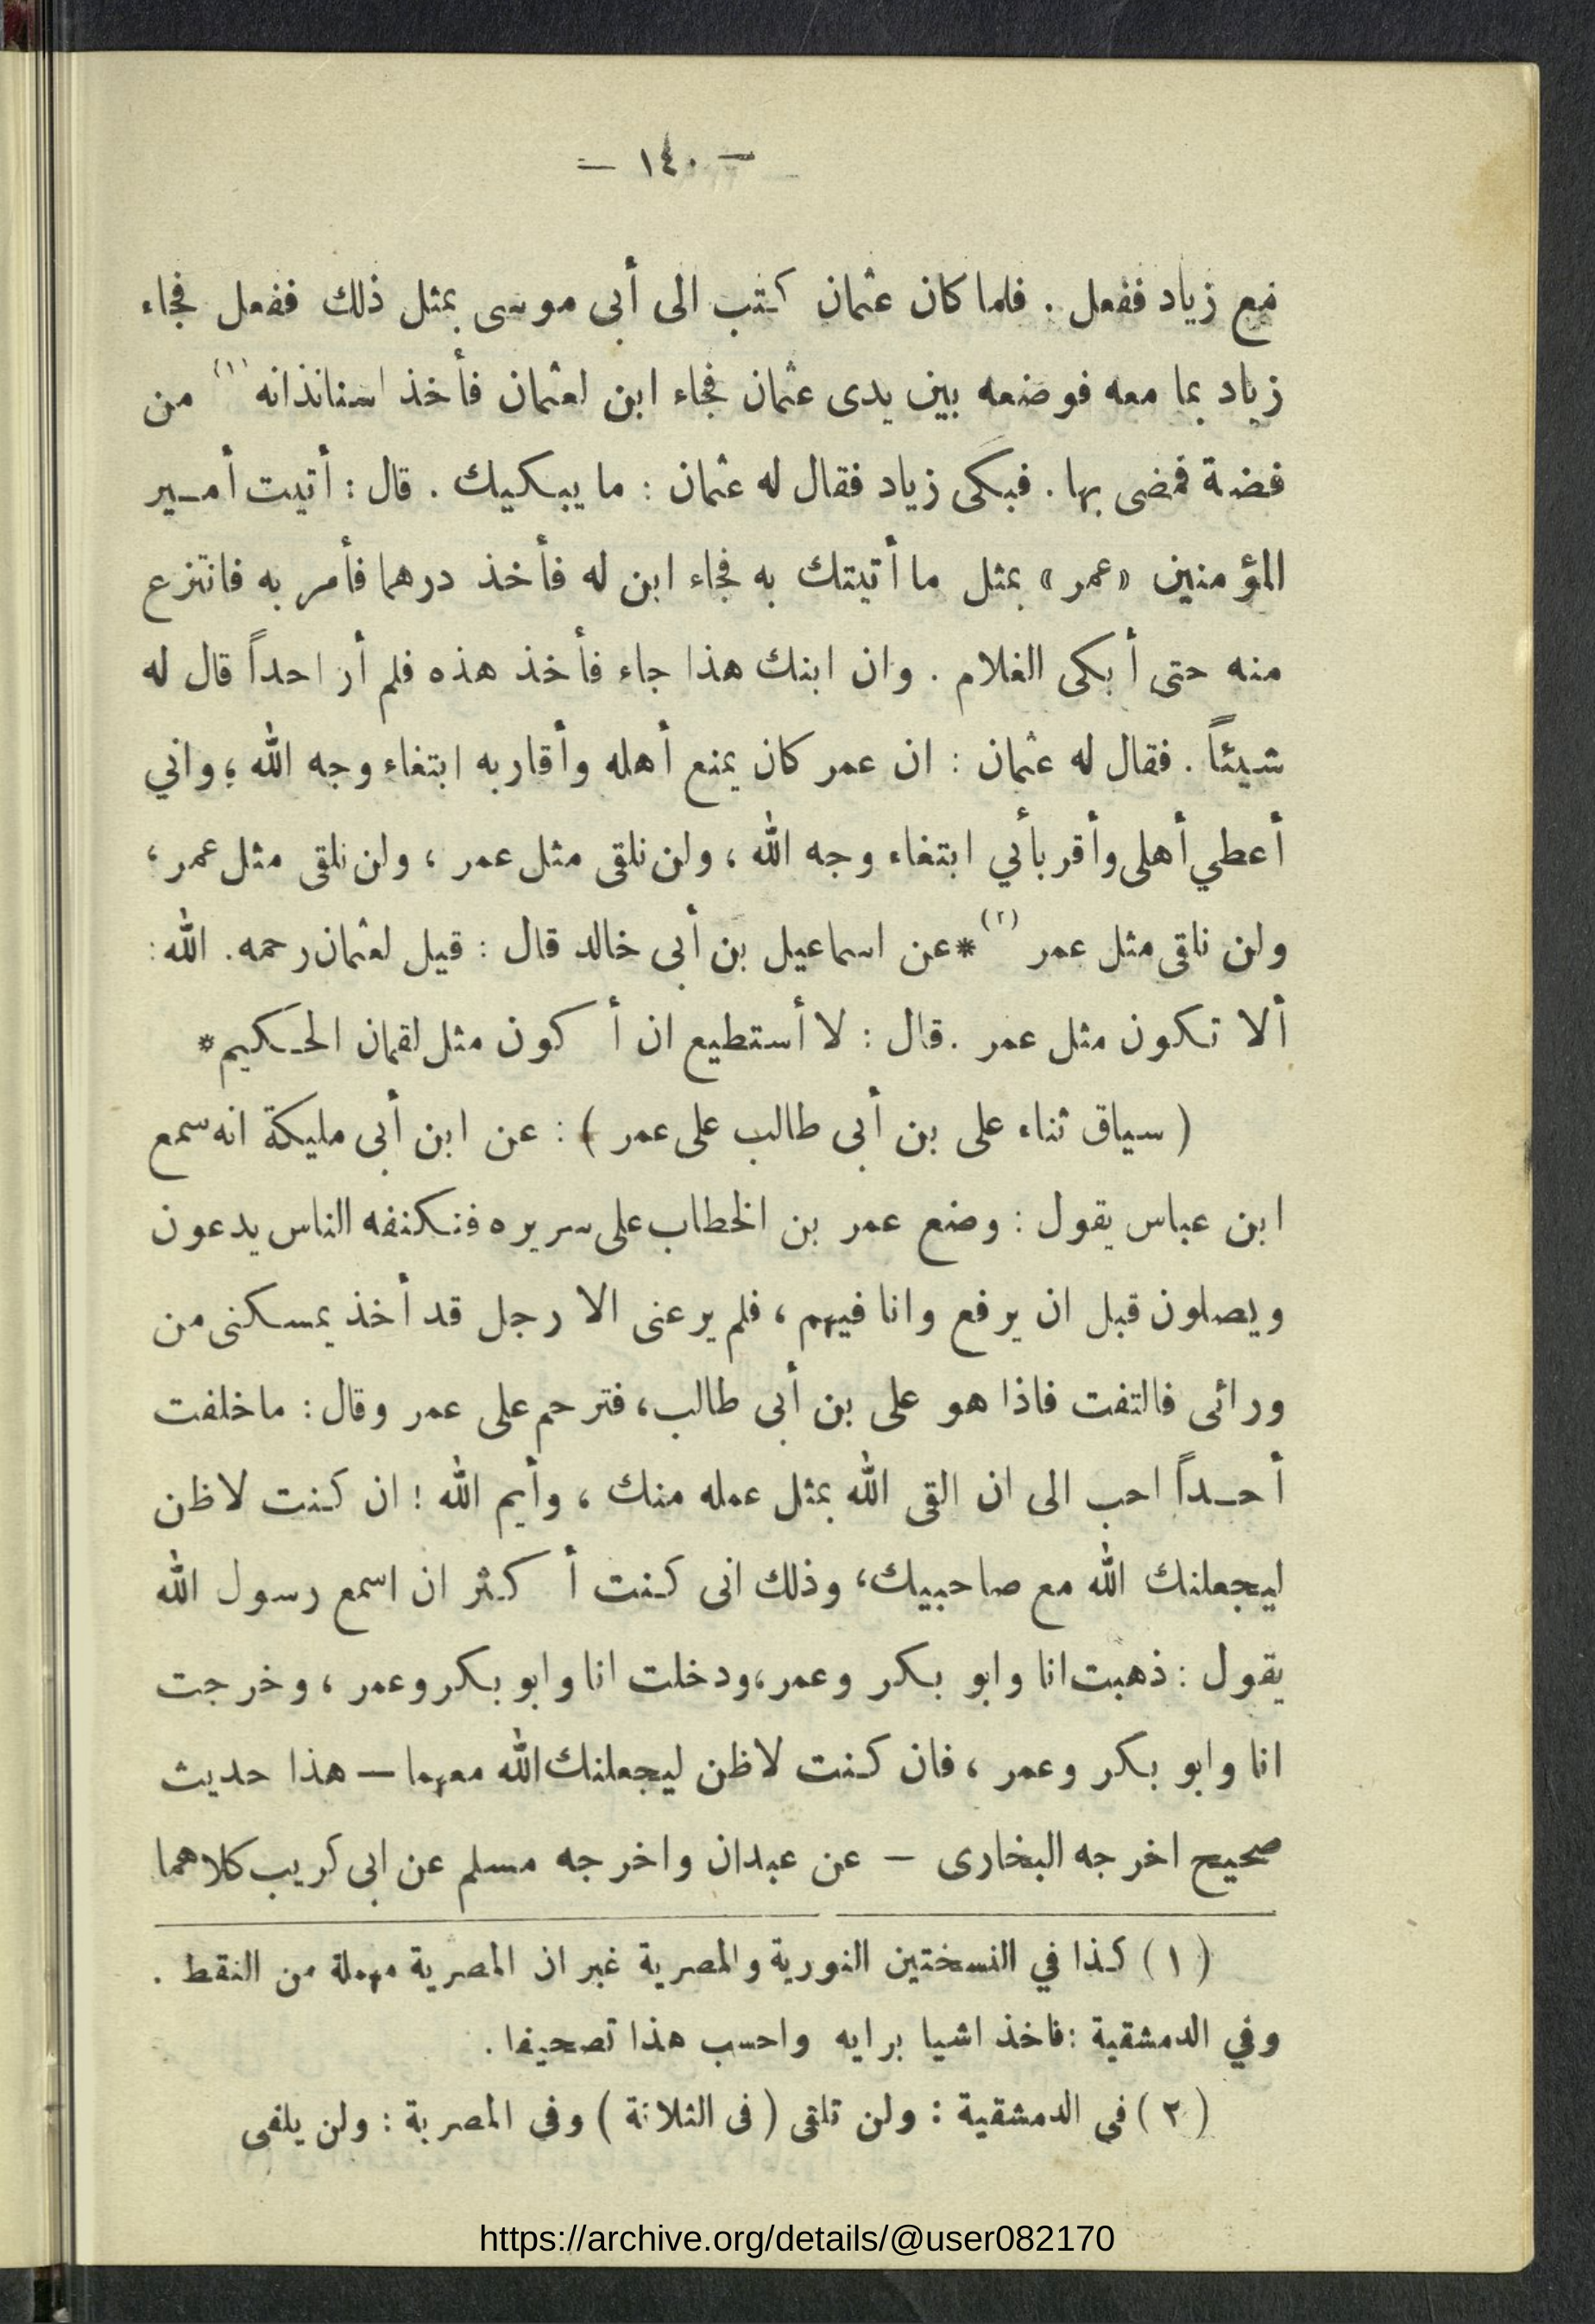 – ١٤٠ –
مع زياد ففعل . فلما كان عثمان كتب الى أبى موسى بمثل ذلك ففعل فجاء
زياد بما معه فوضعه بين يدى عثمان فجاء ابن لعثمان فأخذ استانذانه (١) من
فضة فمضى بها . فبكى زياد فقال له عثمان : ما يبكيك . قال : أتيت أمير
المؤمنين «عمر» بمثل ما أتيتك به فجاء ابن له فأخذ درهما فأمر به فانتزع
منه حتى أبكى الغلام . وان ابنك هذا جاء فأخذ هذه فلم أر احداً قال له
شيئاً . فقال له عثمان : ان عمر كان يمنع أهله وأقاربه ابتغاء وجه الله ؛ واني
أعطي أهلى وأقربأبي ابتغاء وجه الله ، ولن نلقى مثل عمر ، ولن نلقى مثل عمر ،
ولن ناقى مثل عمر (٢) *عن اسماعيل بن أبى خالد قال : قيل لعثمان رحمه . الله :
ألا تكون مثل عمر . قال : لا أستطيع ان أكون مثل لقمان الحكيم*
( سياق ثناء على بن أبى طالب على عمر ) : عن ابن أبى مليكة انه سمع
ابن عباس يقول : وضع عمر بن الخطاب على سريره فتكنفه الناس يدعون
ويصلون قبل ان يرفع وانا فيهم ، فلم يرعنى الا رجل قد أخذ بمسكنى من
ورائى فالتفت فاذا هو على بن أبى طالب ، فترحم على عمر وقال : ما خلفت
أحداً احب الى ان القى الله بمثل عمله منك ، وأيم الله ! ان كنت لاظن
ليجعلنك الله مع صاحبيك ، وذلك انى كنت أكثر ان اسمع رسول الله
يقول : ذهبت انا وابو بكر وعمر ، ودخلت انا وابو بكر وعمر ، وخرجت
انا وابو بكر وعمر ، فان كنت لاظن ليجعلنك الله معهما – هذا حديث
صحيح اخرجه البخارى – عن عبدان واخرجه مسلم عن ابى كريب كلاهما
( ١ ) كذا في النسختين النورية والمصرية غير ان المصرية مهملة من النقط .
وفي الدمشقية : فاخذ اشيا برايه واحسب هذا تصحيفا .
( ٢ ) في الدمشقية : ولن تلقى ( فى الثلاثة ) وفى المصرية : ولن يلفى
https://archive.org/details/@user082170